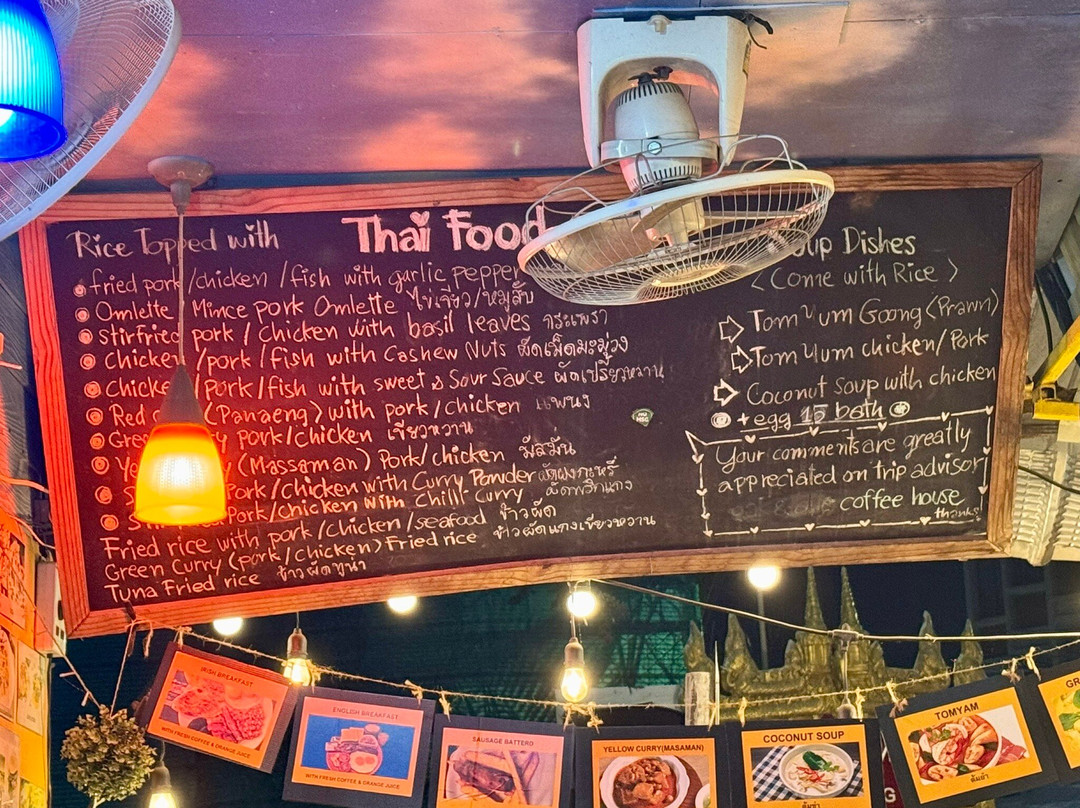 Rice Topped with
Thai Food
fried pork/chicken/fish with garlic, pepper
Omlette, Mince pork Omlette ไข่เจียว/หมูสับ
stirfried pork / Chicken with basil leaves กระเพรา
Chicken/pork/fish with Cashew Nuts ผัดเม็ดมะม่วง
Chicken/pork/fish with sweet & Sour Sauce ผัดเปรี้ยวหวาน
Red (Panaeng) with pork/chicken แพนง
pork/chicken เขียวหวาน
(Massaman) Pork/chicken มัสมั่น
Pork/chicken with Curry Powder ผัดผงกะหรี่
Pork/chicken with Chilli Curry ผัดพริกแกง
Fried rice with pork/chicken/seafood ข้าวผัด
Green Curry (pork/chicken) Fried rice ข้าวผัดแกงเขียวหวาน
Tuna Fried rice ข้าวผัดทูน่า
Dishes
< Come with Rice >
Tom Yum Goong (Prawn)
Tom Yum chicken/Pork
Coconut soup with chicken
+ egg 15 bath
Your comments are greatly
appreciated on trip advisor
coffee house
thanks!
IRISH BREAKFAST
WITH FRESH COFFEE & ORANGE JUICE
ENGLISH BREAKFAST
WITH FRESH COFFEE & ORANGE JUICE
SAUSAGE BATTERO
YELLOW CURRY(MASAMAN)
COCONUT SOUP
ต้มข่า
TOMYAM
ต้มยำ
GR